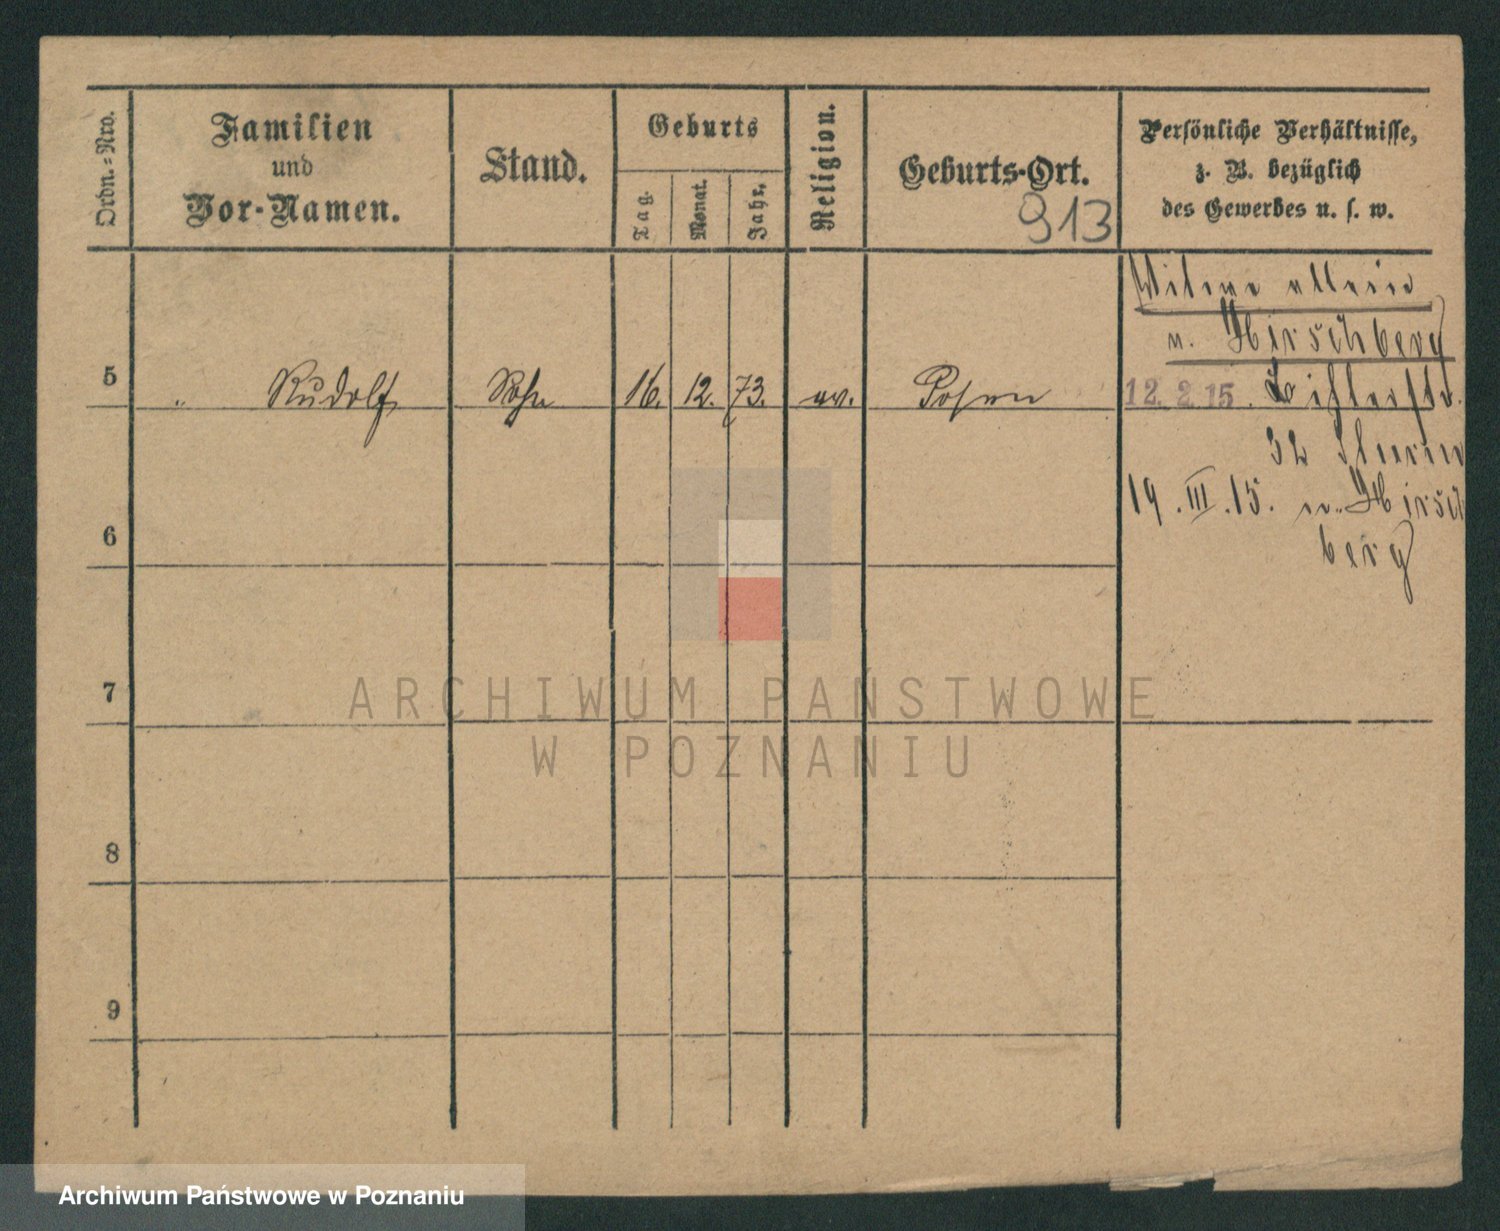 Ordn.-Nro.
Familien
und
Vor-Namen.
Stand.
Geburts
Tag.
Monat.
Jahr.
Religion.
Geburts-Ort.
913
Persönliche Verhältnisse,
z. B. bezüglich
des Gewerbes u. s. w.
allein
n. Hirschberg
5 " Rudolf Sohn 16. 12. 73. ev. Posen 12. 2. 15.
19. III. 15. n. Hirsch
berg
6
7
8
9
ARCHIWUM PAŃSTWOWE
W POZNANIU
Archiwum Państwowe w Poznaniu